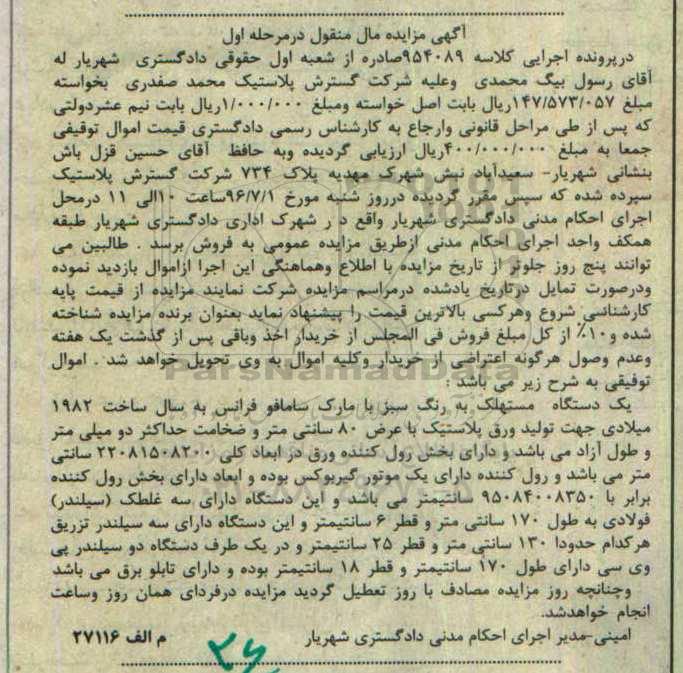 آگهی مزایده مال منقول درمرحله اول
درپرونده اجرایی کلاسه ۹۵۴۰۸۹صادره از شعبه اول حقوقی دادگستری شهریار له
آقای رسول بیگ محمدی وعلیه شرکت گسترش پلاستیک محمد صفدری بخواسته
مبلغ ۱۴۷/۵۷۳/۰۵۷ریال بابت اصل خواسته ومبلغ ۱/۰۰۰/۰۰۰ریال بابت نیم عشردولتی
که پس از طی مراحل قانونی وارجاع به کارشناس رسمی دادگستری قیمت اموال توقیفی
جمعا به مبلغ ۴۰۰/۰۰۰/۰۰۰ریال ارزیابی گردیده وبه حافظ آقای حسین قزل باش
بنشانی شهریار- سعیدآباد نبش شهرک مهدیه پلاک ۷۳۴ شرکت گسترش پلاستیک
سپرده شده که سپس مقرر گردیده درروز شنبه مورخ ۹۶/۷/۱ساعت ۱۰الی ۱۱ درمحل
اجرای احکام مدنی دادگستری شهریار واقع د ر شهرک اداری دادگستری شهریار طبقه
همکف واحد اجرای احکام مدنی ازطریق مزایده عمومی به فروش برسد . طالبین می
توانند پنج روز جلوتر از تاریخ مزایده با اطلاع وهماهنگی این اجرا ازاموال بازدید نموده
ودرصورت تمایل درتاریخ یادشده درمراسم مزایده شرکت نمایند مزایده از قیمت پایه
کارشناسی شروع وهرکسی بالاترین قیمت را پیشنهاد نماید بعنوان برنده مزایده شناخته
شده و۱۰٪ از کل مبلغ فروش فی المجلس از خریدار اخذ وباقی پس از گذشت یک هفته
وعدم وصول هرگونه اعتراضی از خریدار وکلیه اموال به وی تحویل خواهد شد . اموال
توقیفی به شرح زیر می باشد :
یک دستگاه مستهلک به رنگ سبز با مارک سامافو فرانس به سال ساخت ۱۹۸۲
میلادی جهت تولید ورق پلاستیک با عرض ۸۰ سانتی متر و ضخامت حداکثر دو میلی متر
و طول آزاد می باشد و دارای بخش رول کننده ورق در ابعاد کلی ۲۲۰۸۱۵۰۸۲۰۰ سانتی
متر می باشد و رول کننده دارای یک موتور گیربوکس بوده و ابعاد دارای بخش رول کننده
برابر با ۹۵۰۸۴۰۰۸۳۵۰ سانتیمتر می باشد و این دستگاه دارای سه غلطک (سیلندر)
فولادی به طول ۱۷۰ سانتی متر و قطر ۶ سانتیمتر و این دستگاه دارای سه سیلندر تزریق
هرکدام حدودا ۱۳۰ سانتی متر و قطر ۲۵ سانتیمتر و در یک طرف دستگاه دو سیلندر پی
وی سی دارای طول ۱۷۰ سانتیمتر و قطر ۱۸ سانتیمتر بوده و دارای تابلو برق می باشد
وچنانچه روز مزایده مصادف با روز تعطیل گردید مزایده درفردای همان روز وساعت
انجام خواهدشد.
امینی-مدیر اجرای احکام مدنی دادگستری شهریار م الف ۲۷۱۱۶
ParsNamadData